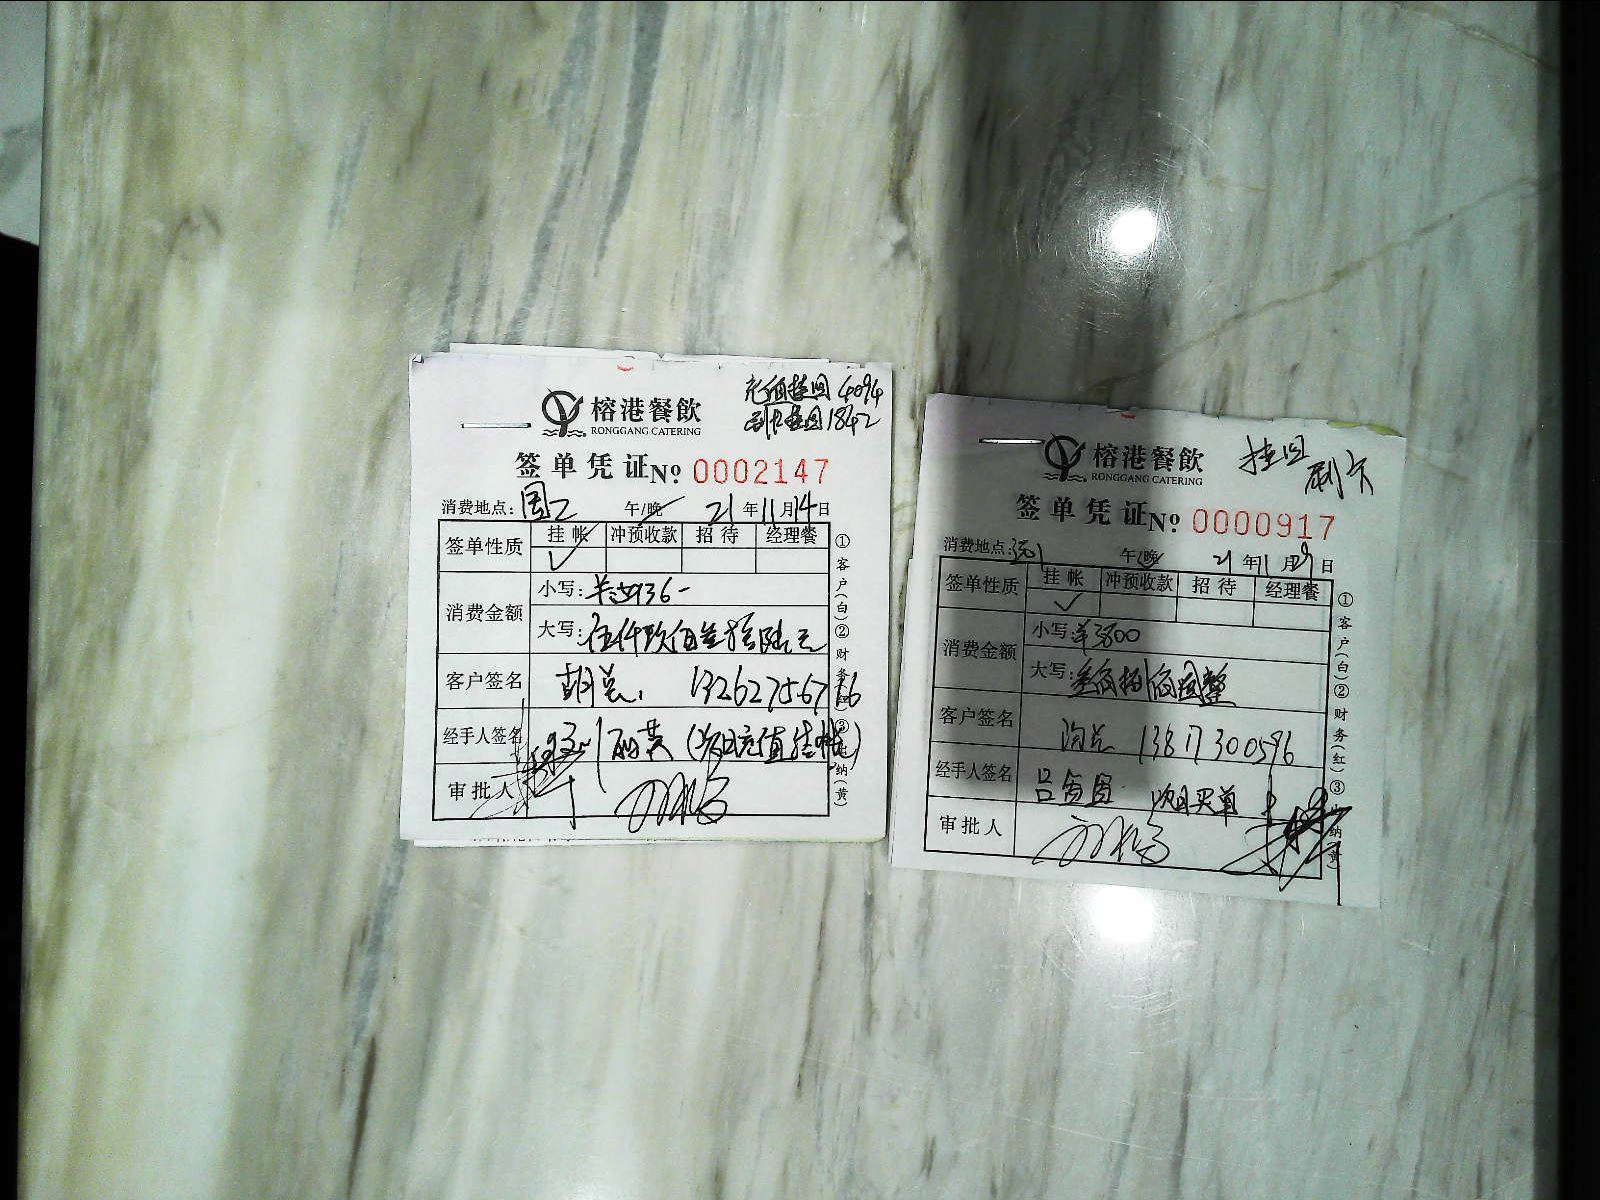 充值挂回 4094
刷卡挂回 1842
榕港餐飲
RONGGANG CATERING
签单凭证 No 0002147
消费地点: 午/晚 21年11月14日
签单性质 挂帐 冲预收款 招待 经理餐
✓
消费金额 小写: 5936-
大写: 伍仟玖佰叁拾陆元
客户签名 胡总 13262756716
经手人签名 (次日充值挂帐)
审批人
①客户(白)②财务(红)③出纳(黄)
挂回
刷卡
榕港餐飲
RONGGANG CATERING
签单凭证 No 0000917
消费地点: 午/晚 21年11月29日
签单性质 挂帐 冲预收款 招待 经理餐
✓
消费金额 小写:
大写:
客户签名 陶总 13817300596
经手人签名 次日买单
审批人
①客户(白)②财务(红)③出纳(黄)